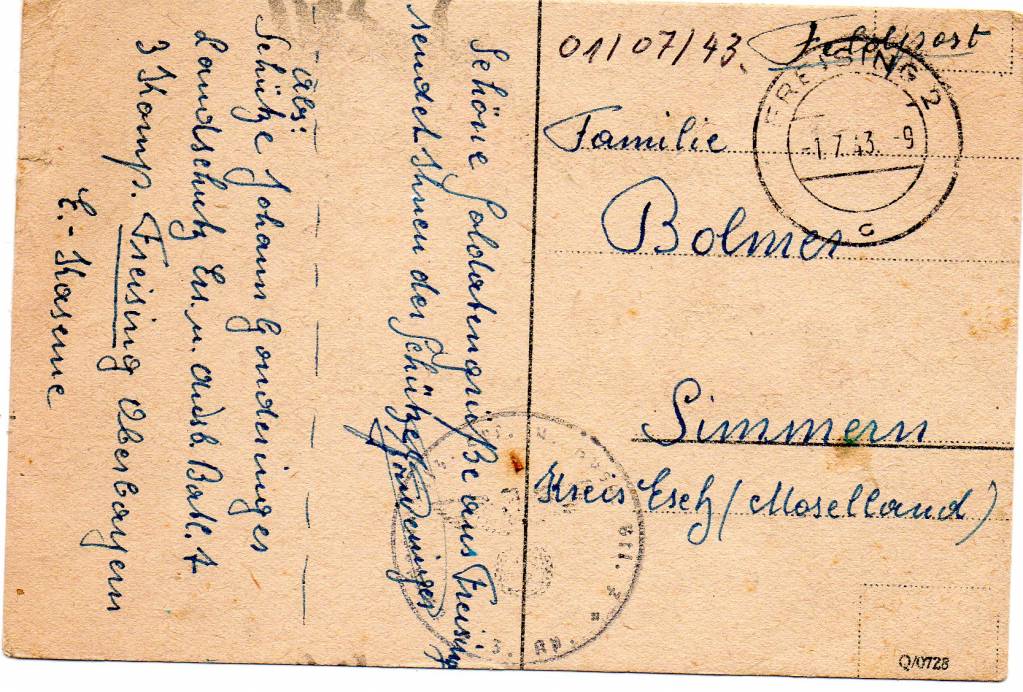 01/07/43. Feldpost
FREISING 2
-1.7.43.-9
c
Familie
Bolmer
Simmern
Kreis Esch (Moselland)
Q/0728
Schöne Soldatengrüße aus Freising
sendet Ihnen der Schütze Gonderinger
Abs:
Schütze Johann Gonderinger
Landschutz Ers. u. Ausb. Batl. 7
3 Komp. Freising Oberbayern
E.-Kaserne